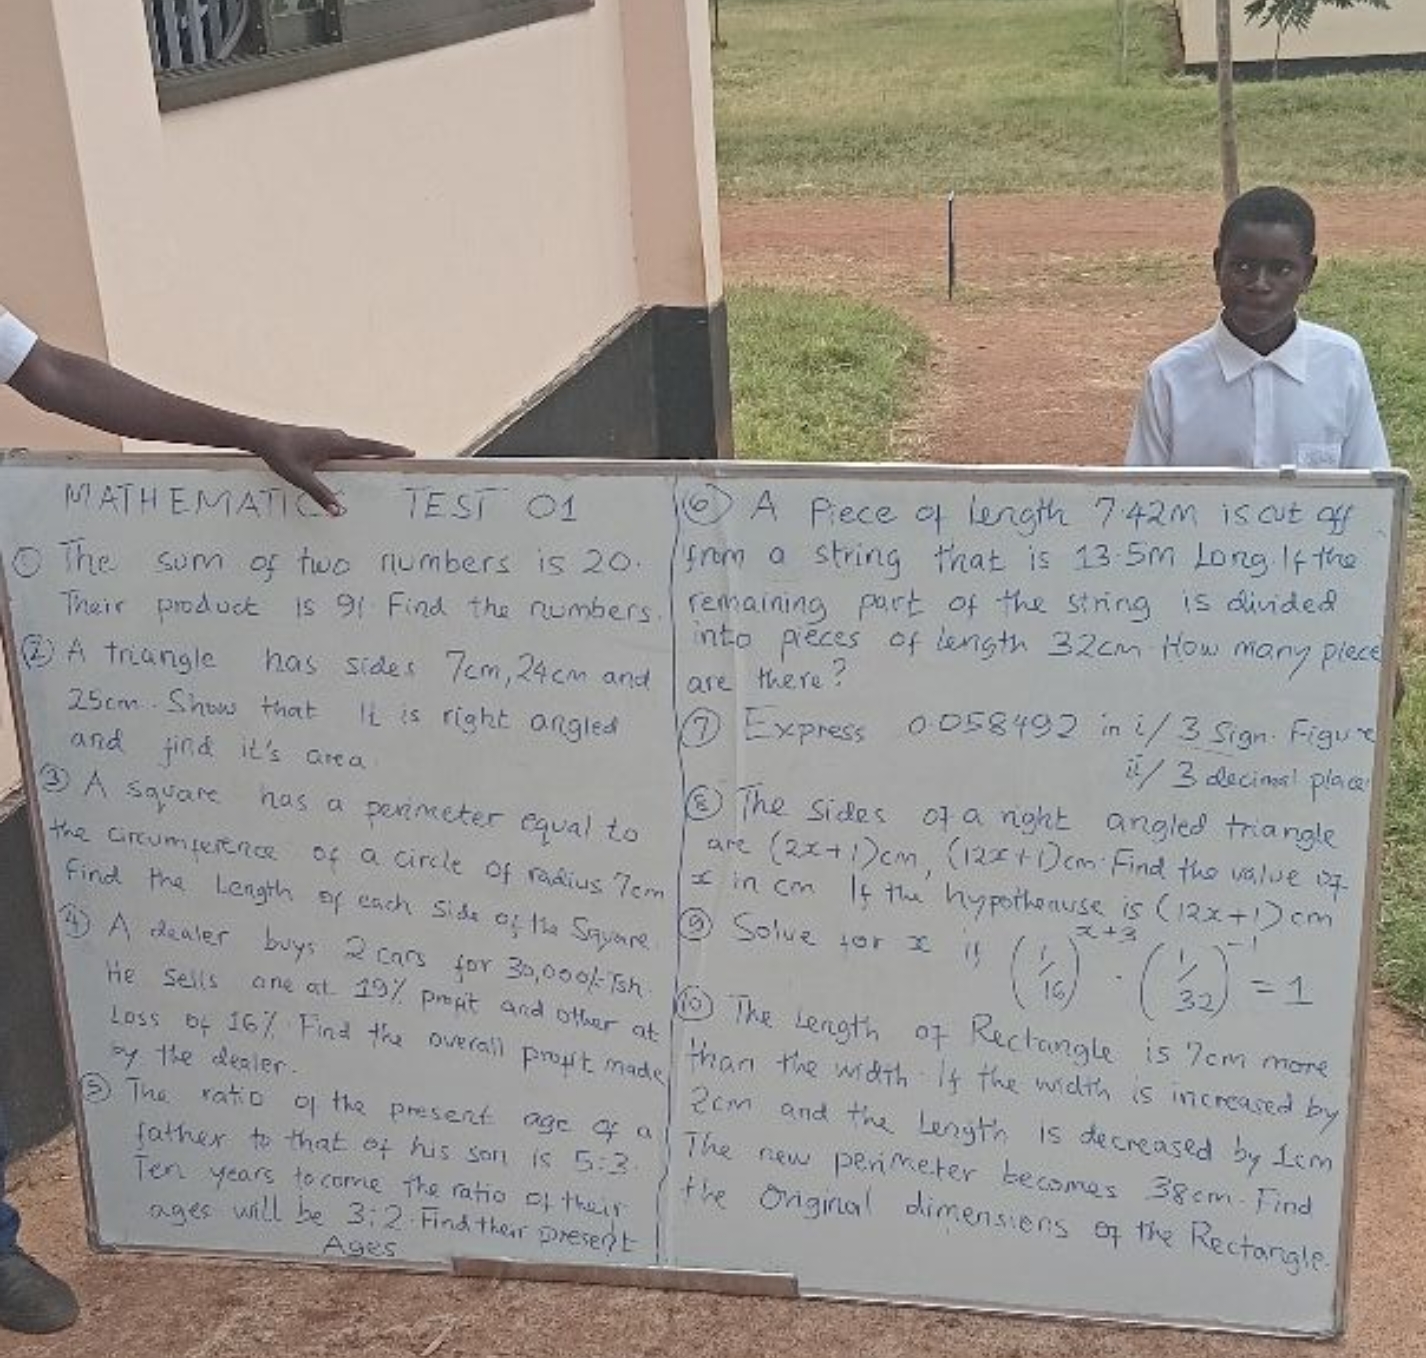 MATHEMATICS TEST 01
① The sum of two numbers is 20.
Their product is 91. Find the numbers.
② A triangle has sides 7cm, 24cm and
25cm. Show that It is right angled
and find it's area.
③ A square has a perimeter equal to
the circumference of a circle of radius 7cm
Find the Length of each side of the Square.
④ A dealer buys 2 cars for 30,000/=Tsh.
He sells one at 19% profit and other at
Loss of 16%. Find the overall profit made
by the dealer.
⑤ The ratio of the present age of a
father to that of his son is 5:3.
Ten years tocome the ratio of their
ages will be 3:2. Find their present
Ages
⑥ A Piece of Length 7.42m is cut off
from a string that is 13.5m Long. If the
remaining part of the string is divided
into pieces of length 32cm. How many piece
are there?
⑦ Express 0.058492 in i/ 3 Sign. Figure
ii/ 3 decimal place
⑧ The sides of a right angled triangle
are (2x+1)cm, (12x+1)cm. Find the value of
x in cm If the hypothenuse is (12x+1)cm
⑨ Solve for x if (1/16)^x+3 · (1/32)^-1 = 1
⑩ The Length of Rectangle is 7cm more
than the width. If the width is increased by
2cm and the Length is decreased by 1cm
The new perimeter becomes 38cm. Find
the Original dimensions of the Rectangle.